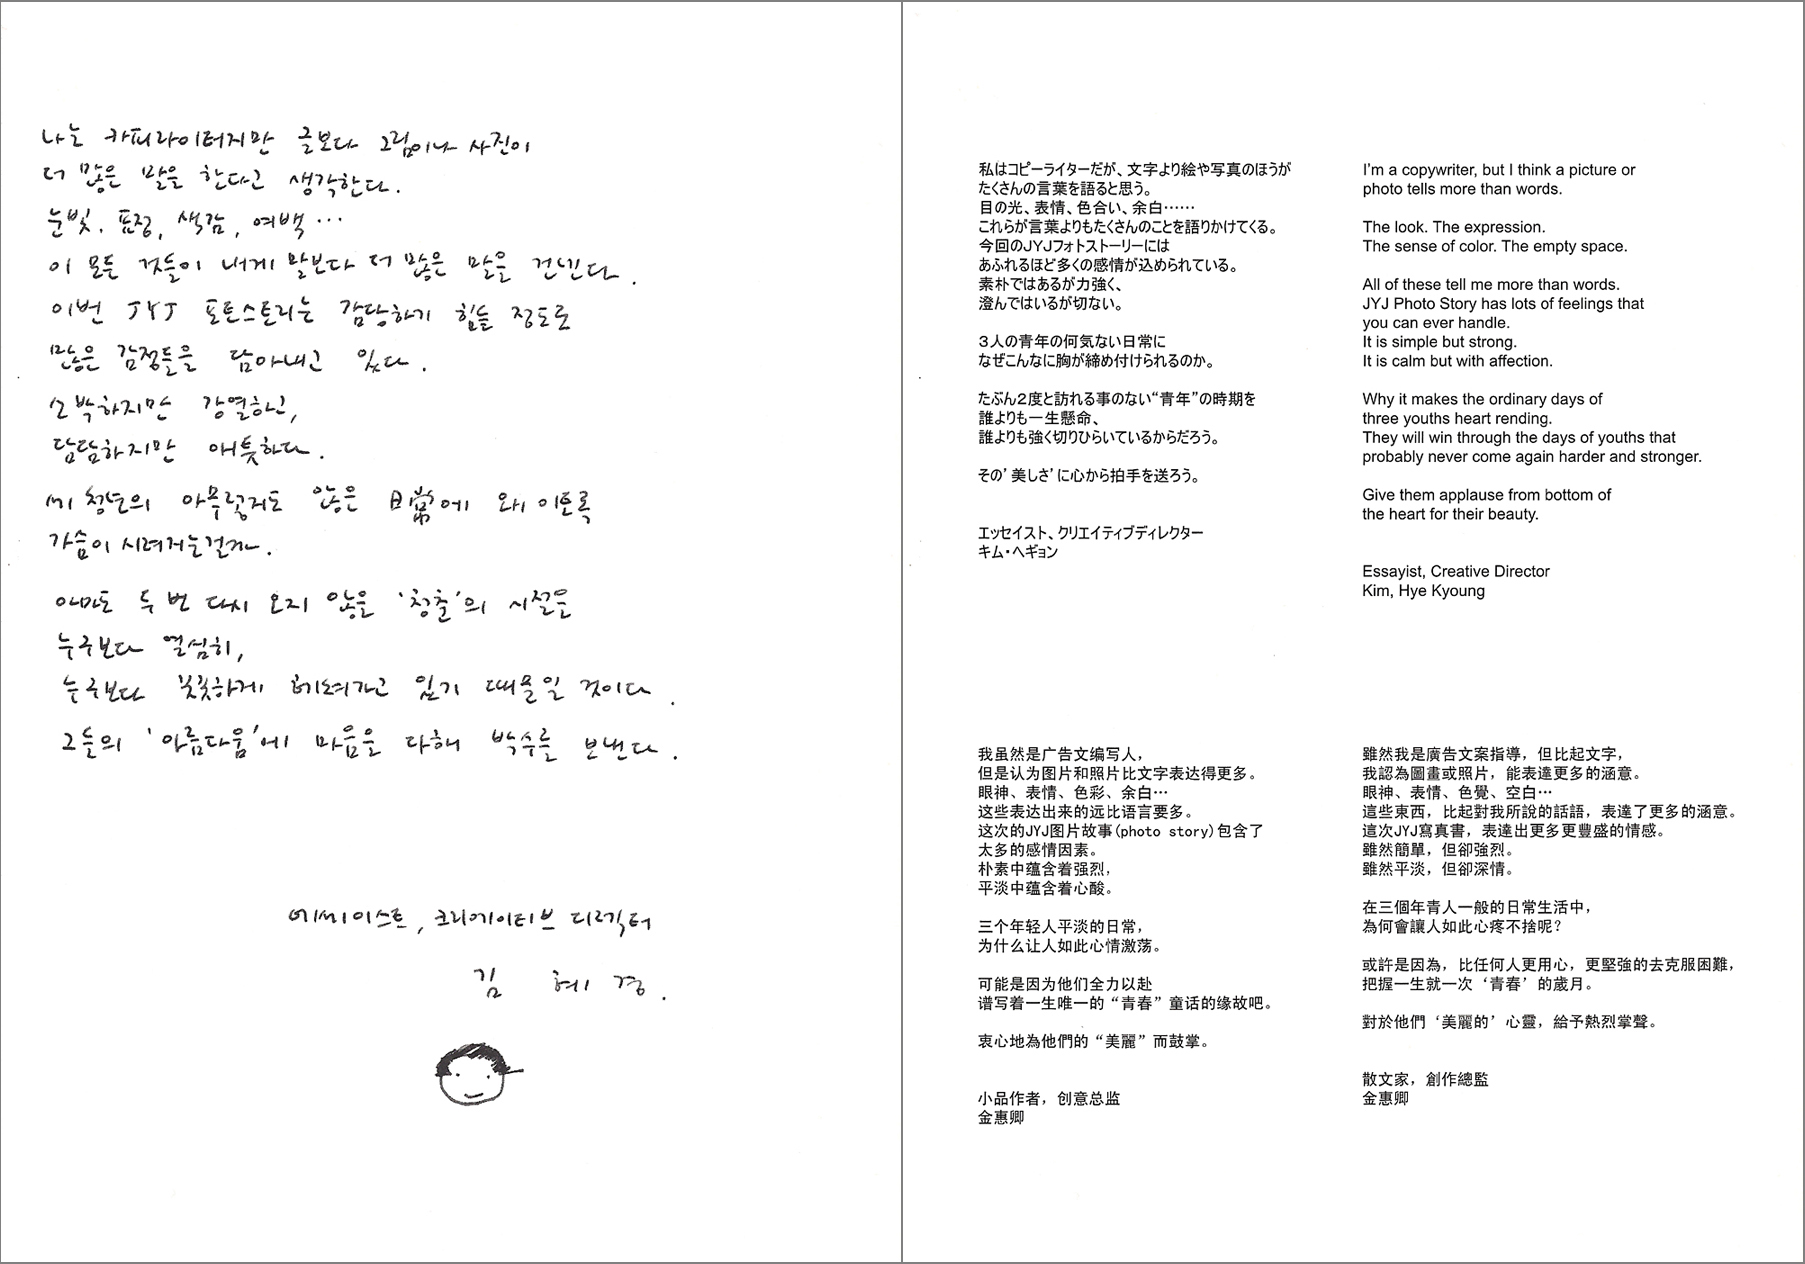 나는 카피라이터지만 글보다 그림이나 사진이
더 많은 말을 한다고 생각한다.
눈빛, 표정, 색감, 여백…
이 모든 것들이 내게 말보다 더 많은 말을 건넨다.
이번 JYJ 포토스토리는 감당하기 힘들 정도로
많은 감정들을 담아내고 있다.
소박하지만 강렬하고,
담담하지만 애틋하다.
세 청년의 아무렇지도 않은 日常에 왜 이토록
가슴이 시려지는걸까.
아마도 두 번 다시 오지 않을 '청춘'의 시절을
누구보다 열심히,
누구보다 꿋꿋하게 헤쳐가고 있기 때문일 것이다.
그들의 '아름다움'에 마음을 다해 박수를 보낸다.
에세이스트, 크리에이티브 디렉터
김 혜 경.
私はコピーライターだが、文字より絵や写真のほうが
たくさんの言葉を語ると思う。
目の光、表情、色合い、余白……
これらが言葉よりもたくさんのことを語りかけてくる。
今回のJYJフォトストーリーには
あふれるほど多くの感情が込められている。
素朴ではあるが力強く、
澄んではいるが切ない。
３人の青年の何気ない日常に
なぜこんなに胸が締め付けられるのか。
たぶん２度と訪れる事のない“青年”の時期を
誰よりも一生懸命、
誰よりも強く切りひらいているからだろう。
その’美しさ’に心から拍手を送ろう。
エッセイスト、クリエイティブディレクター
キム・ヘギョン
I'm a copywriter, but I think a picture or
photo tells more than words.
The look. The expression.
The sense of color. The empty space.
All of these tell me more than words.
JYJ Photo Story has lots of feelings that
you can ever handle.
It is simple but strong.
It is calm but with affection.
Why it makes the ordinary days of
three youths heart rending.
They will win through the days of youths that
probably never come again harder and stronger.
Give them applause from bottom of
the heart for their beauty.
Essayist, Creative Director
Kim, Hye Kyoung
我虽然是广告文编写人，
但是认为图片和照片比文字表达得更多。
眼神、表情、色彩、余白…
这些表达出来的远比语言要多。
这次的JYJ图片故事(photo story)包含了
太多的感情因素。
朴素中蕴含着强烈，
平淡中蕴含着心酸。
三个年轻人平淡的日常，
为什么让人如此心情激荡。
可能是因为他们全力以赴
谱写着一生唯一的“青春”童话的缘故吧。
衷心地為他們的“美麗”而鼓掌。
小品作者，创意总监
金惠卿
雖然我是廣告文案指導，但比起文字，
我認為圖畫或照片，能表達更多的涵意。
眼神、表情、色覺、空白…
這些東西，比起對我所說的話語，表達了更多的涵意。
這次JYJ寫真書，表達出更多更豐盛的情感。
雖然簡單，但卻強烈。
雖然平淡，但卻深情。
在三個年青人一般的日常生活中，
為何會讓人如此心疼不捨呢？
或許是因為，比任何人更用心，更堅強的去克服困難，
把握一生就一次‘青春’的歲月。
對於他們‘美麗的’心靈，給予熱烈掌聲。
散文家，創作總監
金惠卿